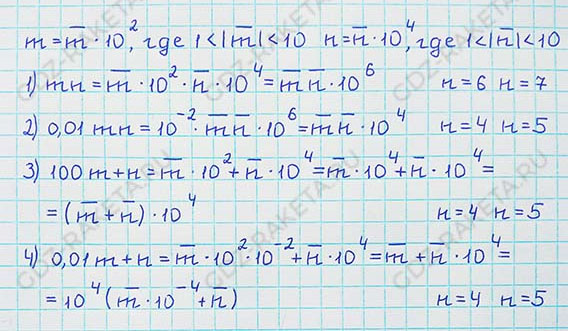 m = m̅ · 10², где 1<|m̅|<10 n = n̅ · 10⁴, где 1<|n̅|<10
1) mn = m̅ · 10² · n̅ · 10⁴ = m̅ n̅ · 10⁶ n=6 n=7
2) 0,01 mn = 10⁻² · m̅ n̅ · 10⁶ = m̅ n̅ · 10⁴ n=4 n=5
3) 100 m + n = m̅ · 10² + n̅ · 10⁴ = m̅ · 10⁴ + n̅ · 10⁴ =
= (m̅ + n̅) · 10⁴ n=4 n=5
4) 0,01 m + n = m̅ · 10² · 10⁻² + n̅ · 10⁴ = m̅ + n̅ · 10⁴ =
= 10⁴ (m̅ · 10⁻⁴ + n̅) n=4 n=5
GDZ-RAKETA.RU